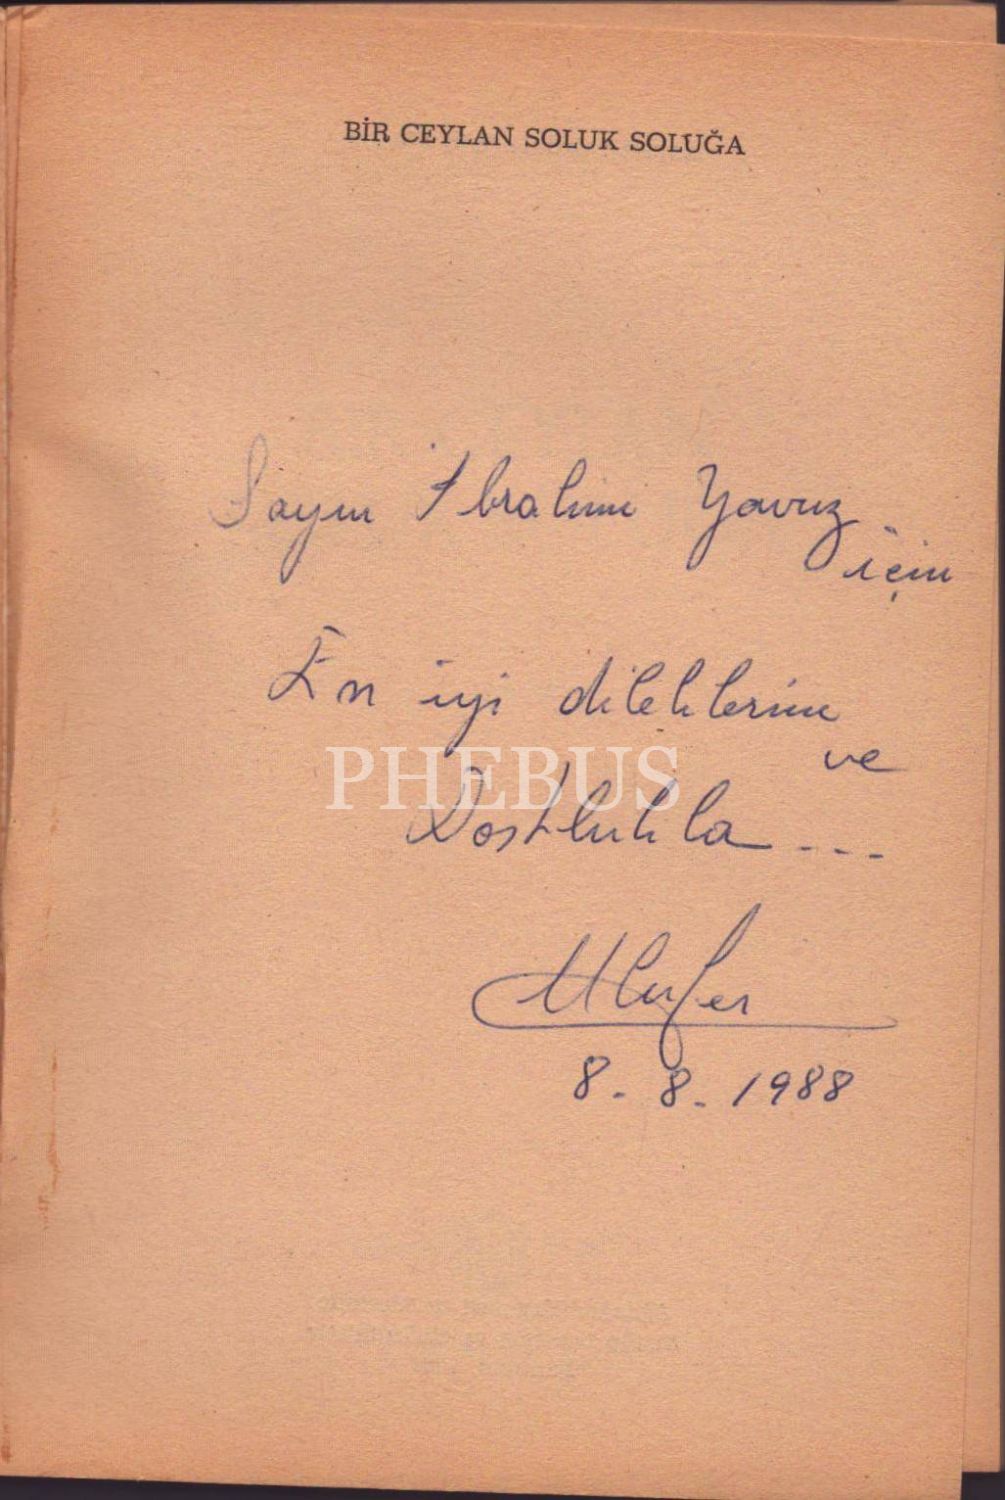 BİR CEYLAN SOLUK SOLUĞA
Sayın İbrahim Yavuz
için
En iyi dileklerim
ve
PHEBUS
Dostlukla ...
8.8.1988